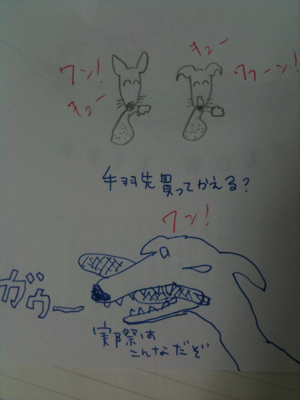 ワン!
キュー
キュー
ワフーン!
手羽先買ってかえる?
ワン!
ガウー
実際は
こんなだぞ